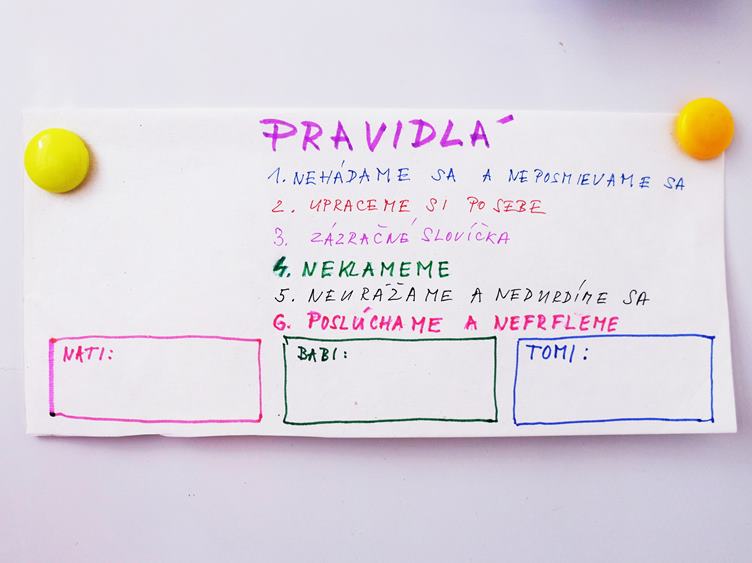 PRAVIDLÁ
1. NEHÁDAME SA A NEPOSMIEVAME SA
2. UPRACEME SI PO SEBE
3. ZÁZRAČNÉ SLOVÍČKA
4. NEKLAMEME
5. NEURÁŽAME A NEDURDÍME SA
6. POSLÚCHAME A NEFRFLEME
NATI: BABI: TOMI: